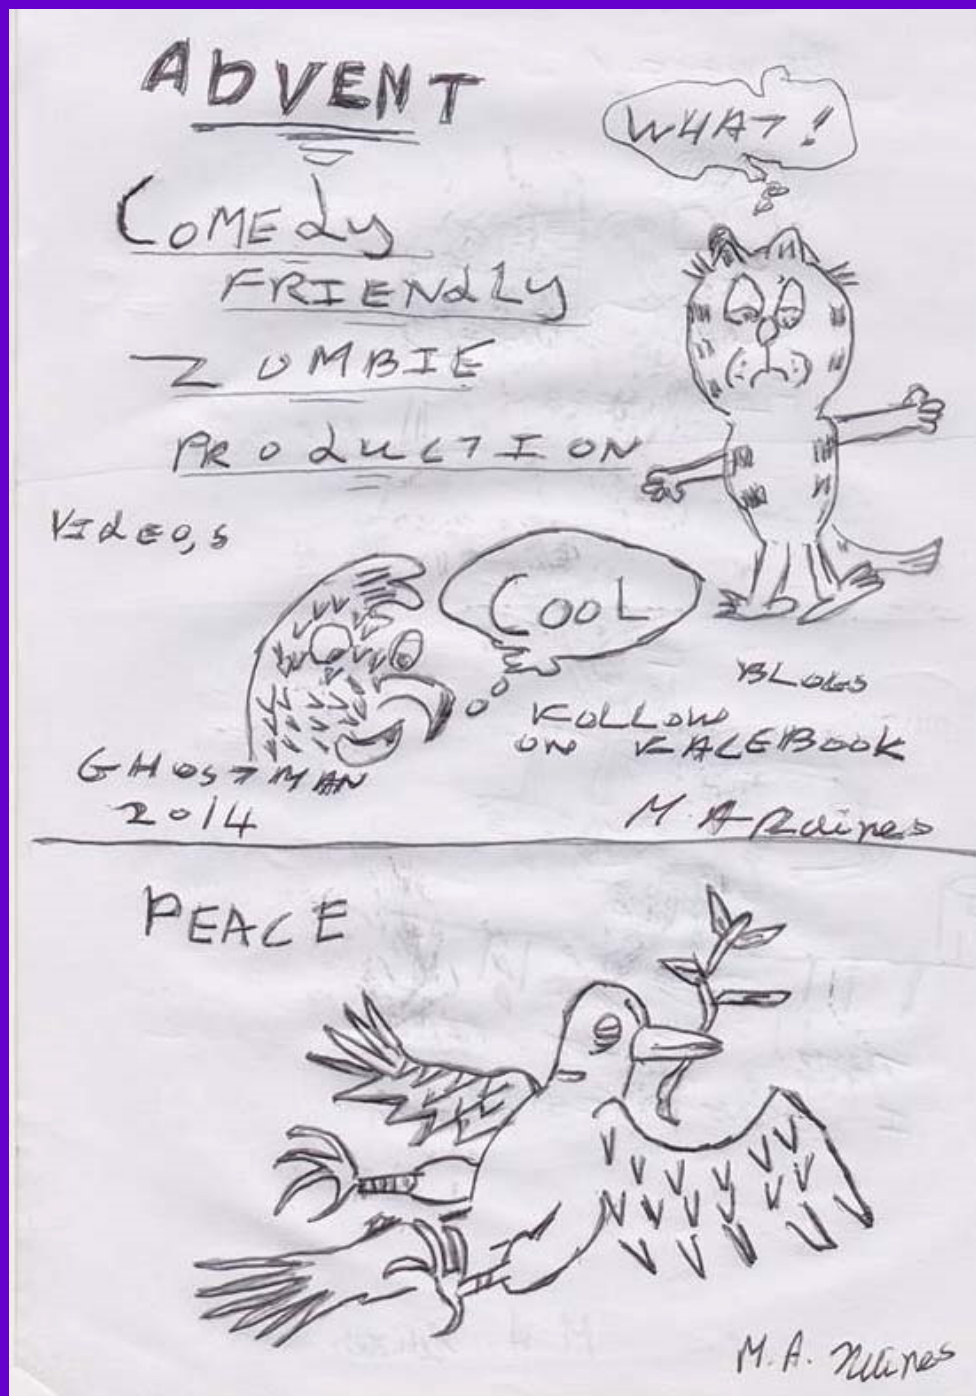 ADVENT
WHAT!
COMEdy
FRIENdLy
ZOMBIE
PROdUCTION
VIdEO,S
COOL
BLOGS
FOLLOW
ON FACEBOOK
GHOSTMAN
2014
M. A
PEACE
M. A.